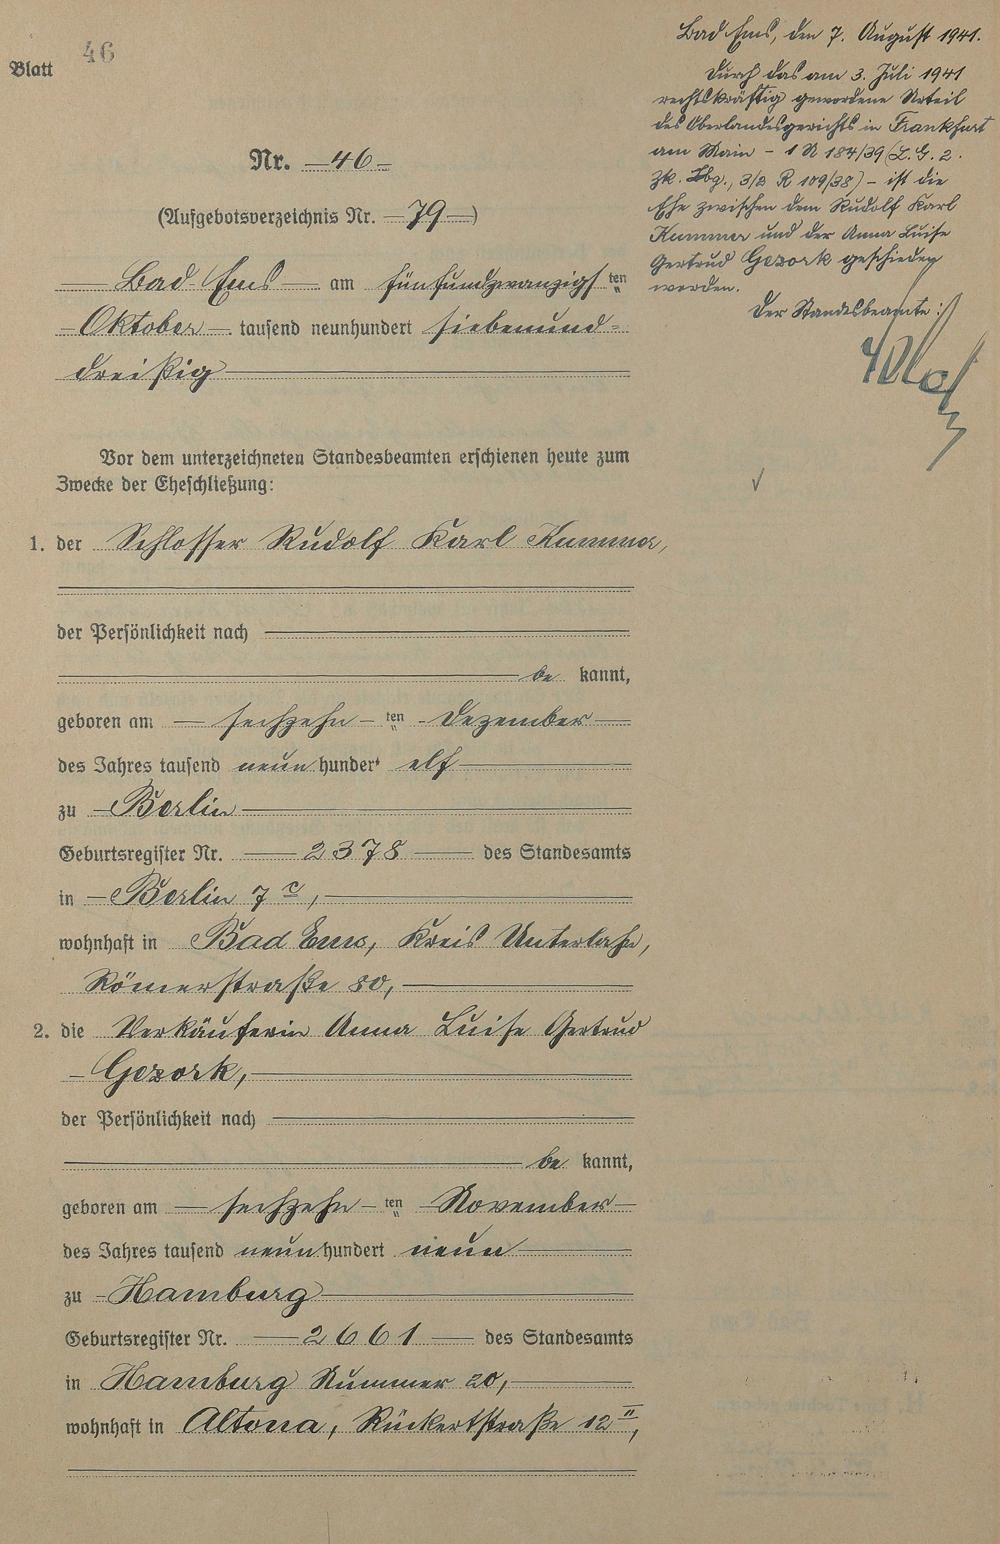 Blatt 46
Nr. 46
(Aufgebotsverzeichnis Nr. 79)
Bad Ems am fünfundzwanzigsten
Oktober tausend neunhundert siebenund-
dreißig
Vor dem unterzeichneten Standesbeamten erschienen heute zum
Zwecke der Eheschließung:
1. der Schlosser Rudolf Karl Kummer,
der Persönlichkeit nach
be kannt,
geboren am sechzehn ten Dezember
des Jahres tausend neun hundert elf
zu Berlin
Geburtsregister Nr. 2378 des Standesamts
in Berlin 7c,
wohnhaft in Bad Ems, Kreis Unterlahn,
Römerstraße 80,
2. die Verkäuferin Anna Luise Gertrud
Gezork,
der Persönlichkeit nach
be kannt,
geboren am sechzehn ten November
des Jahres tausend neun hundert neun
zu Hamburg
Geburtsregister Nr. 2661 des Standesamts
in Hamburg Nummer 20,
wohnhaft in Altona, Rückertstraße 12 II,
Bad Ems, den 7. August 1941.
Durch das am 3. Juli 1941
rechtskräftig gewordene Urteil
des Oberlandesgerichts in Frankfurt
am Main - 1 U 184/39 (L.G. 2.
Zk. Lbg., 3/2 R 109/38) - ist die
Ehe zwischen dem Rudolf Karl
Kummer und der Anna Luise
Gertrud Gezork geschieden
worden.
Der Standesbeamte: